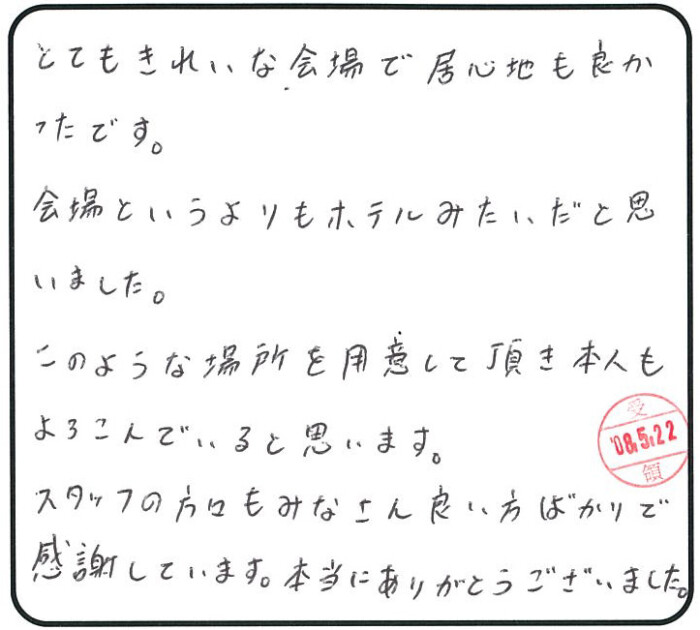 とてもきれいな会場で居心地も良か
ったです。
会場というよりもホテルみたいだと思
いました。
このような場所を用意して頂き本人も
よろこんでいると思います。
受
'08.5.22
領
スタッフの方々もみなさん良い方ばかりで
感謝しています。本当にありがとうございました。